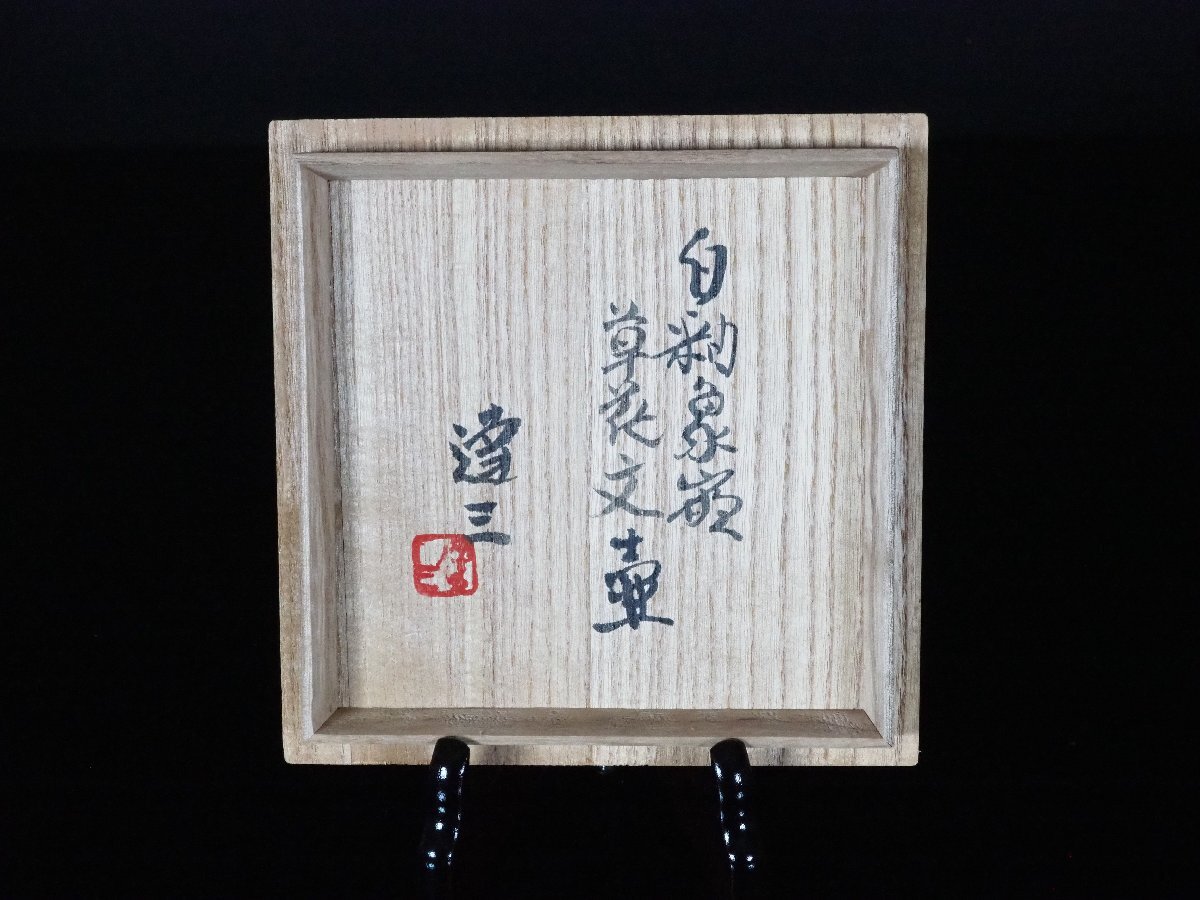 白釉象嵌
草花文壷
達三